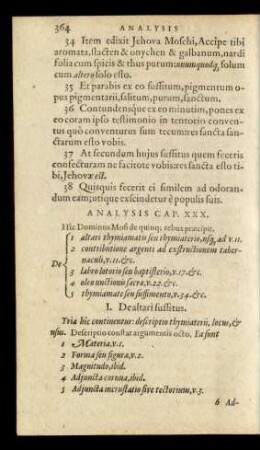 364 ANALYSIS
34 Item edixit Jehova Moschi, Accipe tibi
aromata, stacten & onychen & galbanum, nardi
folia cum spicis & thus purum: unumquodq, solum
cum altero solo esto.
35 Et parabis ex eo suffitum, pigmentum o-
pus pigmentarii, salitum, purum, sanctum.
36 Contundensque ex eo minutim, pones ex
eo coram ipso testimonio in tentorio conven-
tus quò conventurus sum tecum: res sancta san-
ctarum esto vobis.
37 At secundum hujus suffitus quem feceris
confecturam ne facitote vobis: res sancta esto ti-
bi, Jehovæ est.
38 Quisquis fecerit ei similem ad odoran-
dum eam; utique exscindetur è populis suis.
ANALYSIS CAP. XXX.
Hîc Dominus Mosi de quinq; rebus præcipit.
De
1 altari thymiamatis seu thymiaterio, usq, ad v. 11.
2 contributione argenti ad exstructionem taber-
naculi, v. 11. &c.
3 labro lotorio seu baptisterio, v. 17. &c.
4 oleo unctionis sacræ, v. 22. &c.
5 thymiamate seu suffimento, v. 34. &c.
I. De altari suffitus.
Tria hîc continentur: descriptio thymiaterii, locus, &
usus. Descriptio constat argumentis octo. Ea sunt
1 Materia, v. 1.
2 Forma seu figura, v. 2.
3 Magnitudo, ibid.
4 Adjuncta cornua, ibid.
5 Adjuncta incrustatio sive tectorium, v. 3.
6 Ad-